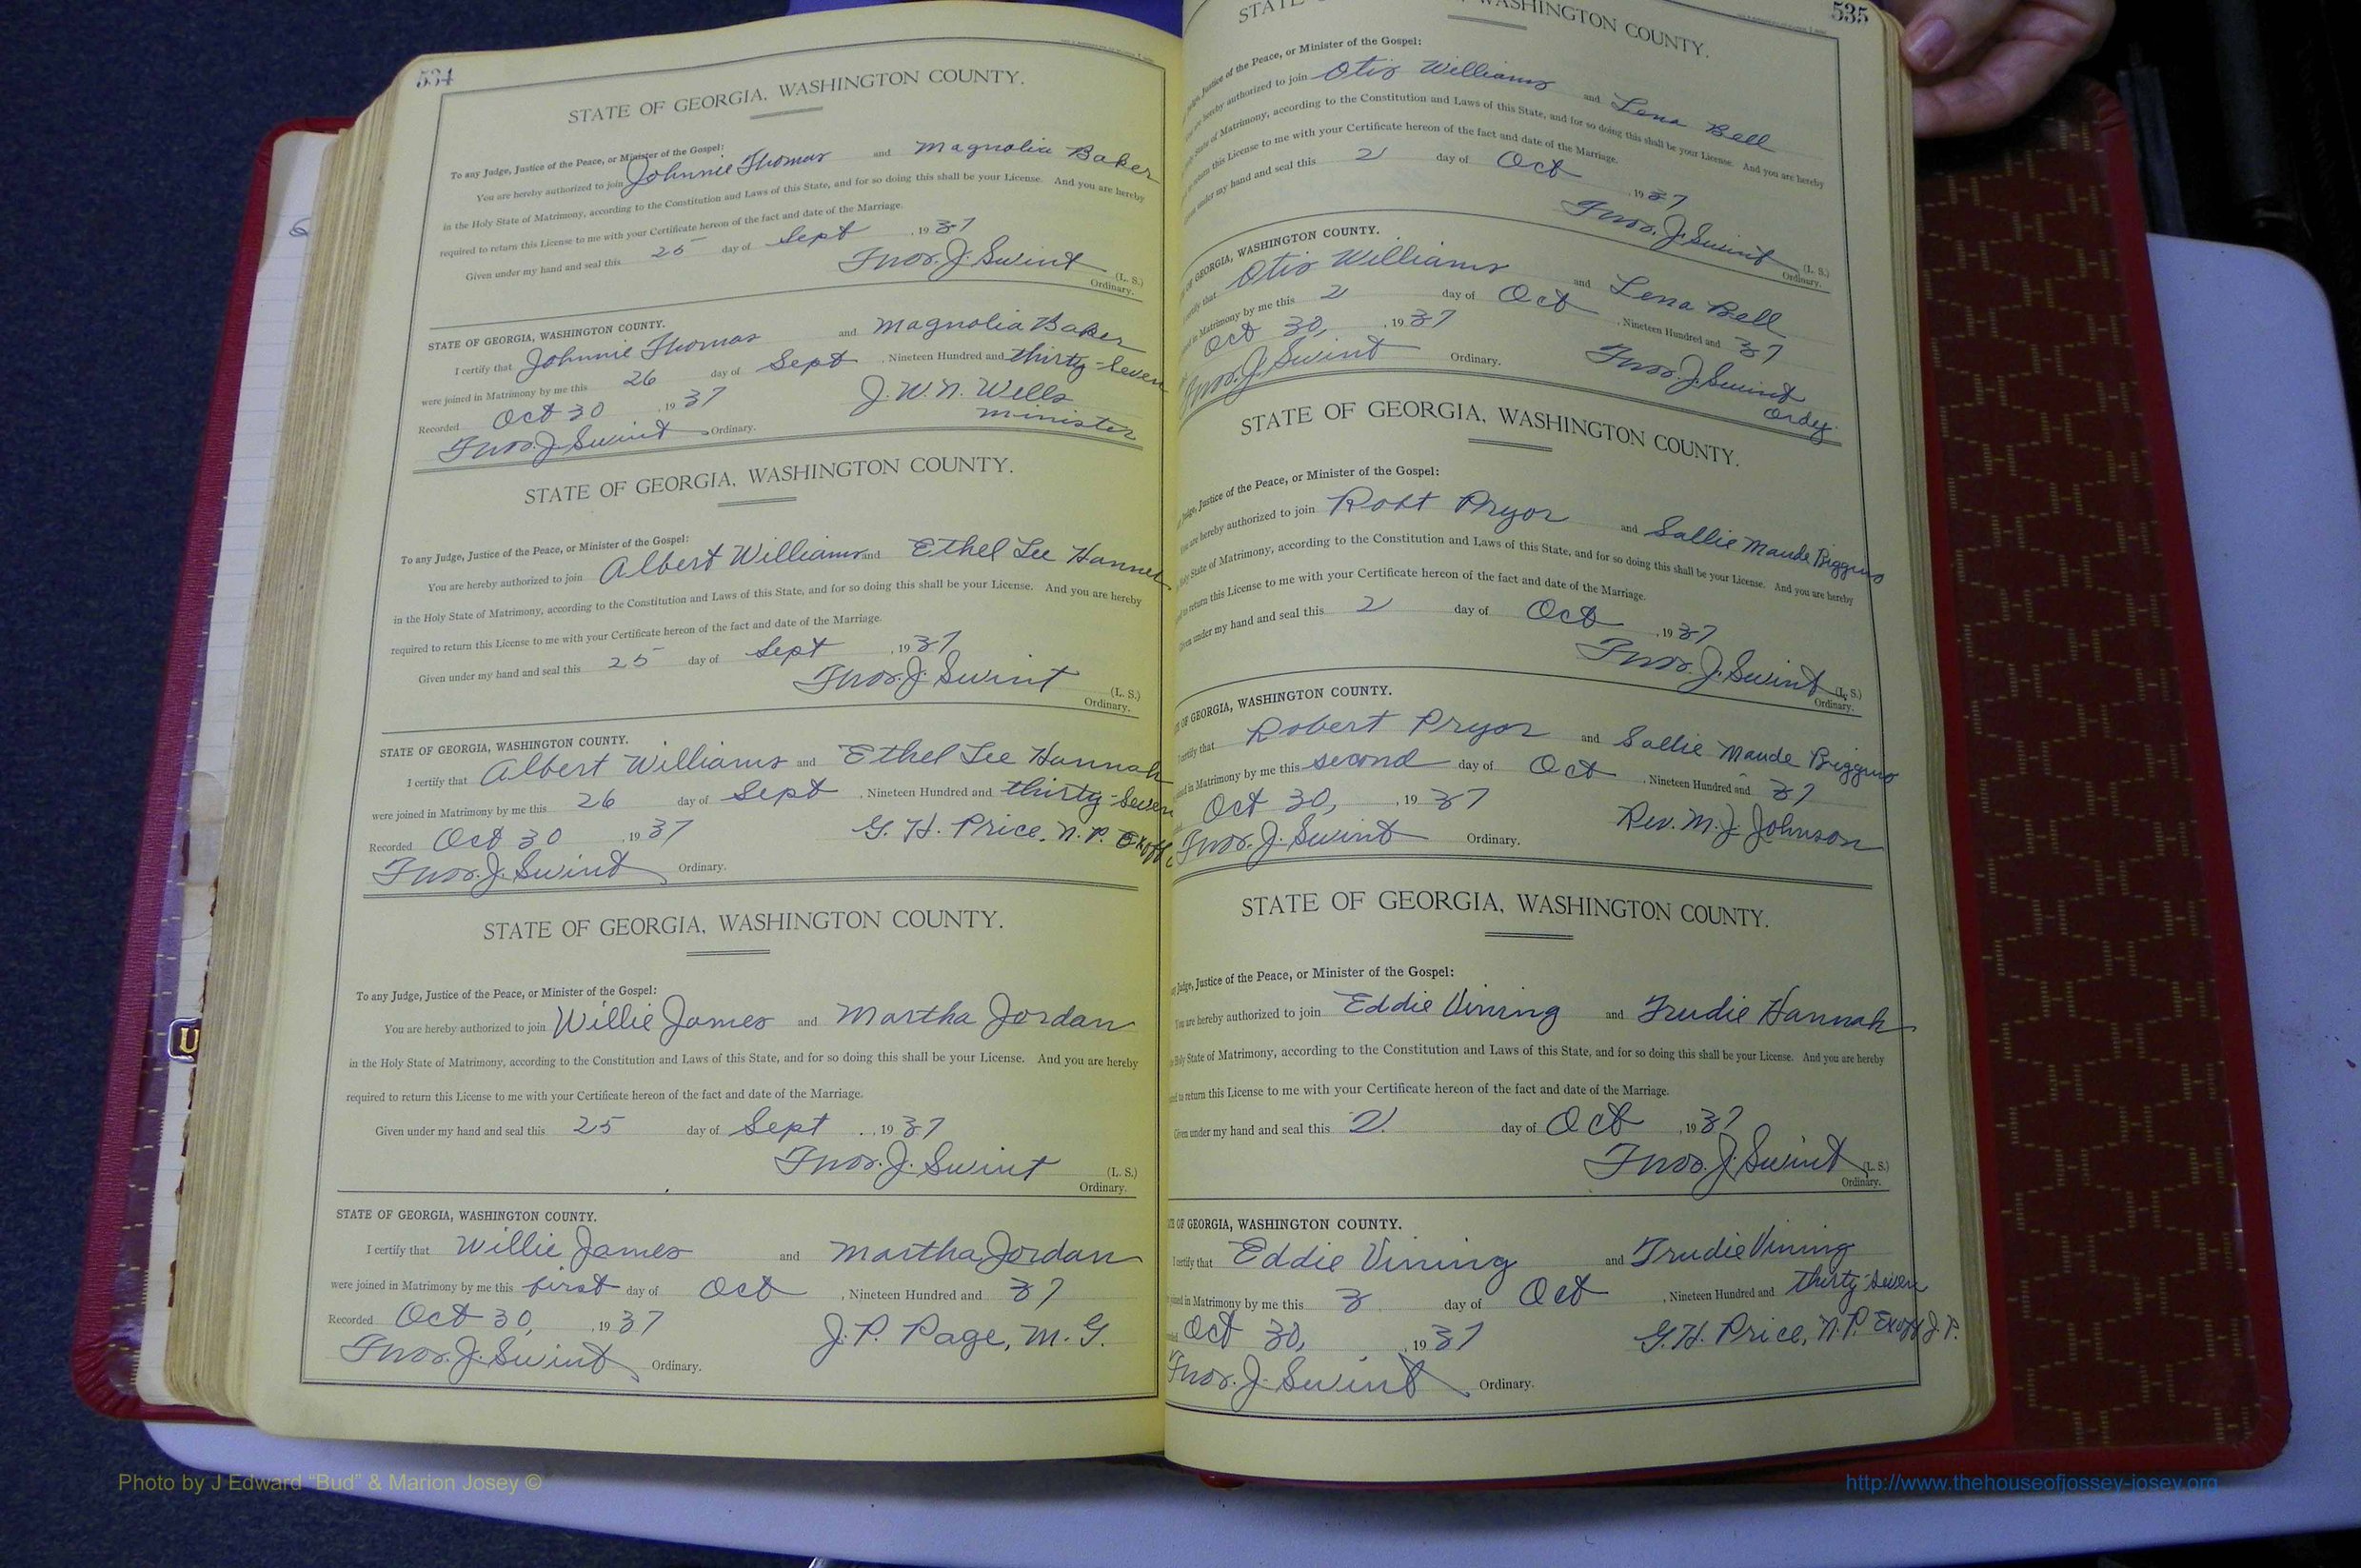 534
STATE OF GEORGIA, WASHINGTON COUNTY.
To any Judge, Justice of the Peace, or Minister of the Gospel:
You are hereby authorized to join Johnnie Thomas and Magnolia Baker
in the Holy State of Matrimony, according to the Constitution and Laws of this State, and for so doing this shall be your License. And you are hereby
required to return this License to me with your Certificate hereon of the fact and date of the Marriage.
Given under my hand and seal this 25 day of Sept , 1937
Thos. J. Swint (L. S.)
Ordinary.
STATE OF GEORGIA, WASHINGTON COUNTY.
I certify that Johnnie Thomas and Magnolia Baker
were joined in Matrimony by me this 26 day of Sept , Nineteen Hundred and thirty-seven
Recorded Oct 30 , 1937 J. W. N. Wells
Thos. J. Swint Ordinary. minister
STATE OF GEORGIA, WASHINGTON COUNTY.
To any Judge, Justice of the Peace, or Minister of the Gospel:
You are hereby authorized to join Albert Williams and Ethel Lee Hannah
in the Holy State of Matrimony, according to the Constitution and Laws of this State, and for so doing this shall be your License. And you are hereby
required to return this License to me with your Certificate hereon of the fact and date of the Marriage.
Given under my hand and seal this 25 day of Sept , 1937
Thos. J. Swint (L. S.)
Ordinary.
STATE OF GEORGIA, WASHINGTON COUNTY.
I certify that Albert Williams and Ethel Lee Hannah
were joined in Matrimony by me this 26 day of Sept , Nineteen Hundred and thirty-seven
Recorded Oct 30 , 1937 G. H. Price, N. P. Exoff
Thos. J. Swint Ordinary.
STATE OF GEORGIA, WASHINGTON COUNTY.
To any Judge, Justice of the Peace, or Minister of the Gospel:
You are hereby authorized to join Willie James and Martha Jordan
in the Holy State of Matrimony, according to the Constitution and Laws of this State, and for so doing this shall be your License. And you are hereby
required to return this License to me with your Certificate hereon of the fact and date of the Marriage.
Given under my hand and seal this 25 day of Sept , 1937
Thos. J. Swint (L. S.)
Ordinary.
STATE OF GEORGIA, WASHINGTON COUNTY.
I certify that Willie James and Martha Jordan
were joined in Matrimony by me this first day of Oct , Nineteen Hundred and 37
Recorded Oct 30, , 1937 J. P. Page, M. G.
Thos. J. Swint Ordinary.
535
STATE WASHINGTON COUNTY.
Judge, Justice of the Peace, or Minister of the Gospel:
hereby authorized to join Otis Williams and Lena Bell
State of Matrimony, according to the Constitution and Laws of this State, and for so doing this shall be your License. And you are hereby
return this License to me with your Certificate hereon of the fact and date of the Marriage.
under my hand and seal this 2 day of Oct , 1937
Thos. J. Swint (L. S.)
Ordinary.
OF GEORGIA, WASHINGTON COUNTY.
certify that Otis Williams and Lena Bell
in Matrimony by me this 2 day of Oct , Nineteen Hundred and 37
Oct 30, , 1937 Thos. J. Swint
Thos. J. Swint Ordinary. Ordy.
STATE OF GEORGIA, WASHINGTON COUNTY.
Judge, Justice of the Peace, or Minister of the Gospel:
are hereby authorized to join Robt Pryor and Sallie Maude Biggins
Holy State of Matrimony, according to the Constitution and Laws of this State, and for so doing this shall be your License. And you are hereby
to return this License to me with your Certificate hereon of the fact and date of the Marriage.
Given under my hand and seal this 2 day of Oct , 1937
Thos. J. Swint (L. S.)
Ordinary.
OF GEORGIA, WASHINGTON COUNTY.
I certify that Robert Pryor and Sallie Maude Biggins
in Matrimony by me this second day of Oct , Nineteen Hundred and 37
Oct 30, , 1937 Rev. M. J. Johnson
Thos. J. Swint Ordinary.
STATE OF GEORGIA, WASHINGTON COUNTY.
Judge, Justice of the Peace, or Minister of the Gospel:
You are hereby authorized to join Eddie Vining and Trudie Hannah
Holy State of Matrimony, according to the Constitution and Laws of this State, and for so doing this shall be your License. And you are hereby
to return this License to me with your Certificate hereon of the fact and date of the Marriage.
Given under my hand and seal this 2 day of Oct , 1937
Thos. J. Swint (L. S.)
Ordinary.
OF GEORGIA, WASHINGTON COUNTY.
I certify that Eddie Vining and Trudie Vining
joined in Matrimony by me this 3 day of Oct , Nineteen Hundred and thirty-seven
Oct 30, , 1937 G. H. Price, N. P. Exoff J. P.
Thos. J. Swint Ordinary.
Photo by J Edward “Bud” & Marion Josey ©
http://www.thehouseofjossey-josey.org